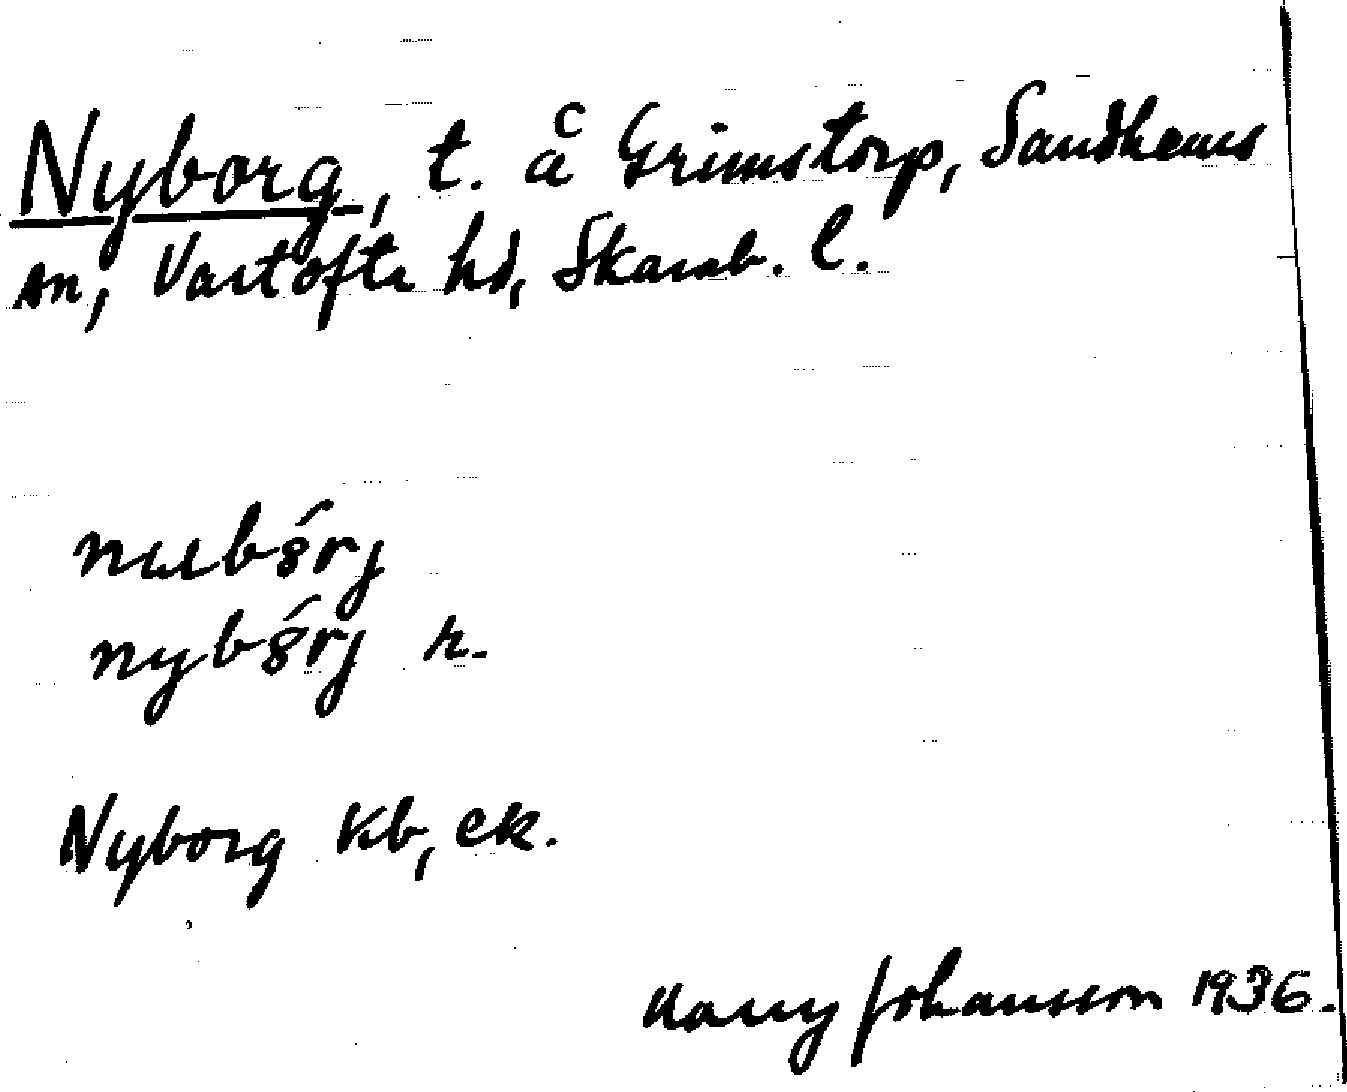 Nyborg, t. å Grimstorp, Sandhems
sn, Vartofta hd, Skarab. l.
nybórj r.
Nyborg kb, ek.
Harry Johansson 1936.